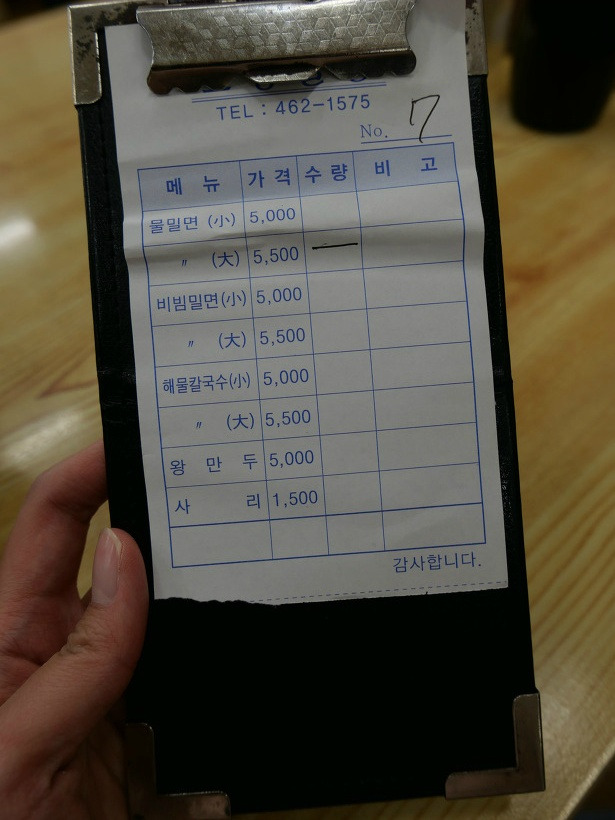 TEL : 462-1575
No. 7
메 뉴 가 격 수 량 비 고
물밀면 (小) 5,000
〃 (大) 5,500 一
비빔밀면(小) 5,000
〃 (大) 5,500
해물칼국수(小) 5,000
〃 (大) 5,500
왕 만 두 5,000
사 리 1,500
감사합니다.